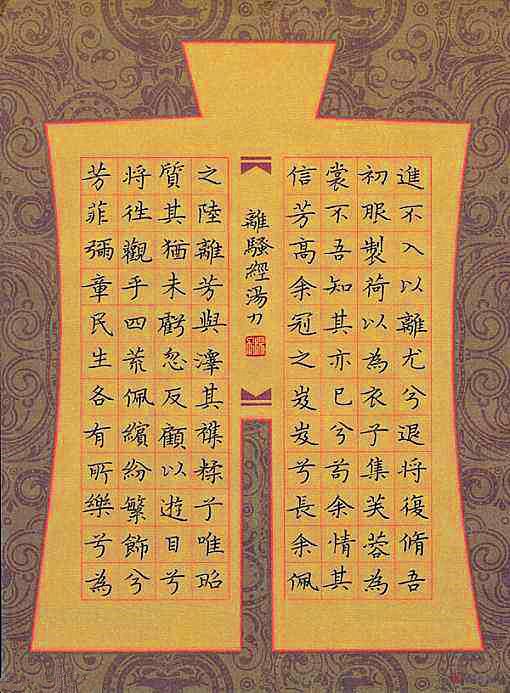 進不入以離尤兮退將復脩吾
初服製荷以為衣兮集芙蓉為
裳不吾知其亦已兮苟余情其
信芳高余冠之岌岌兮長余佩
離騷經湯刀
之陸離芳與澤其襍糅兮唯昭
質其猶未虧忽反顧以遊目兮
將往觀乎四荒佩繽紛繁飾兮
芳菲彌章民生各有所樂兮為